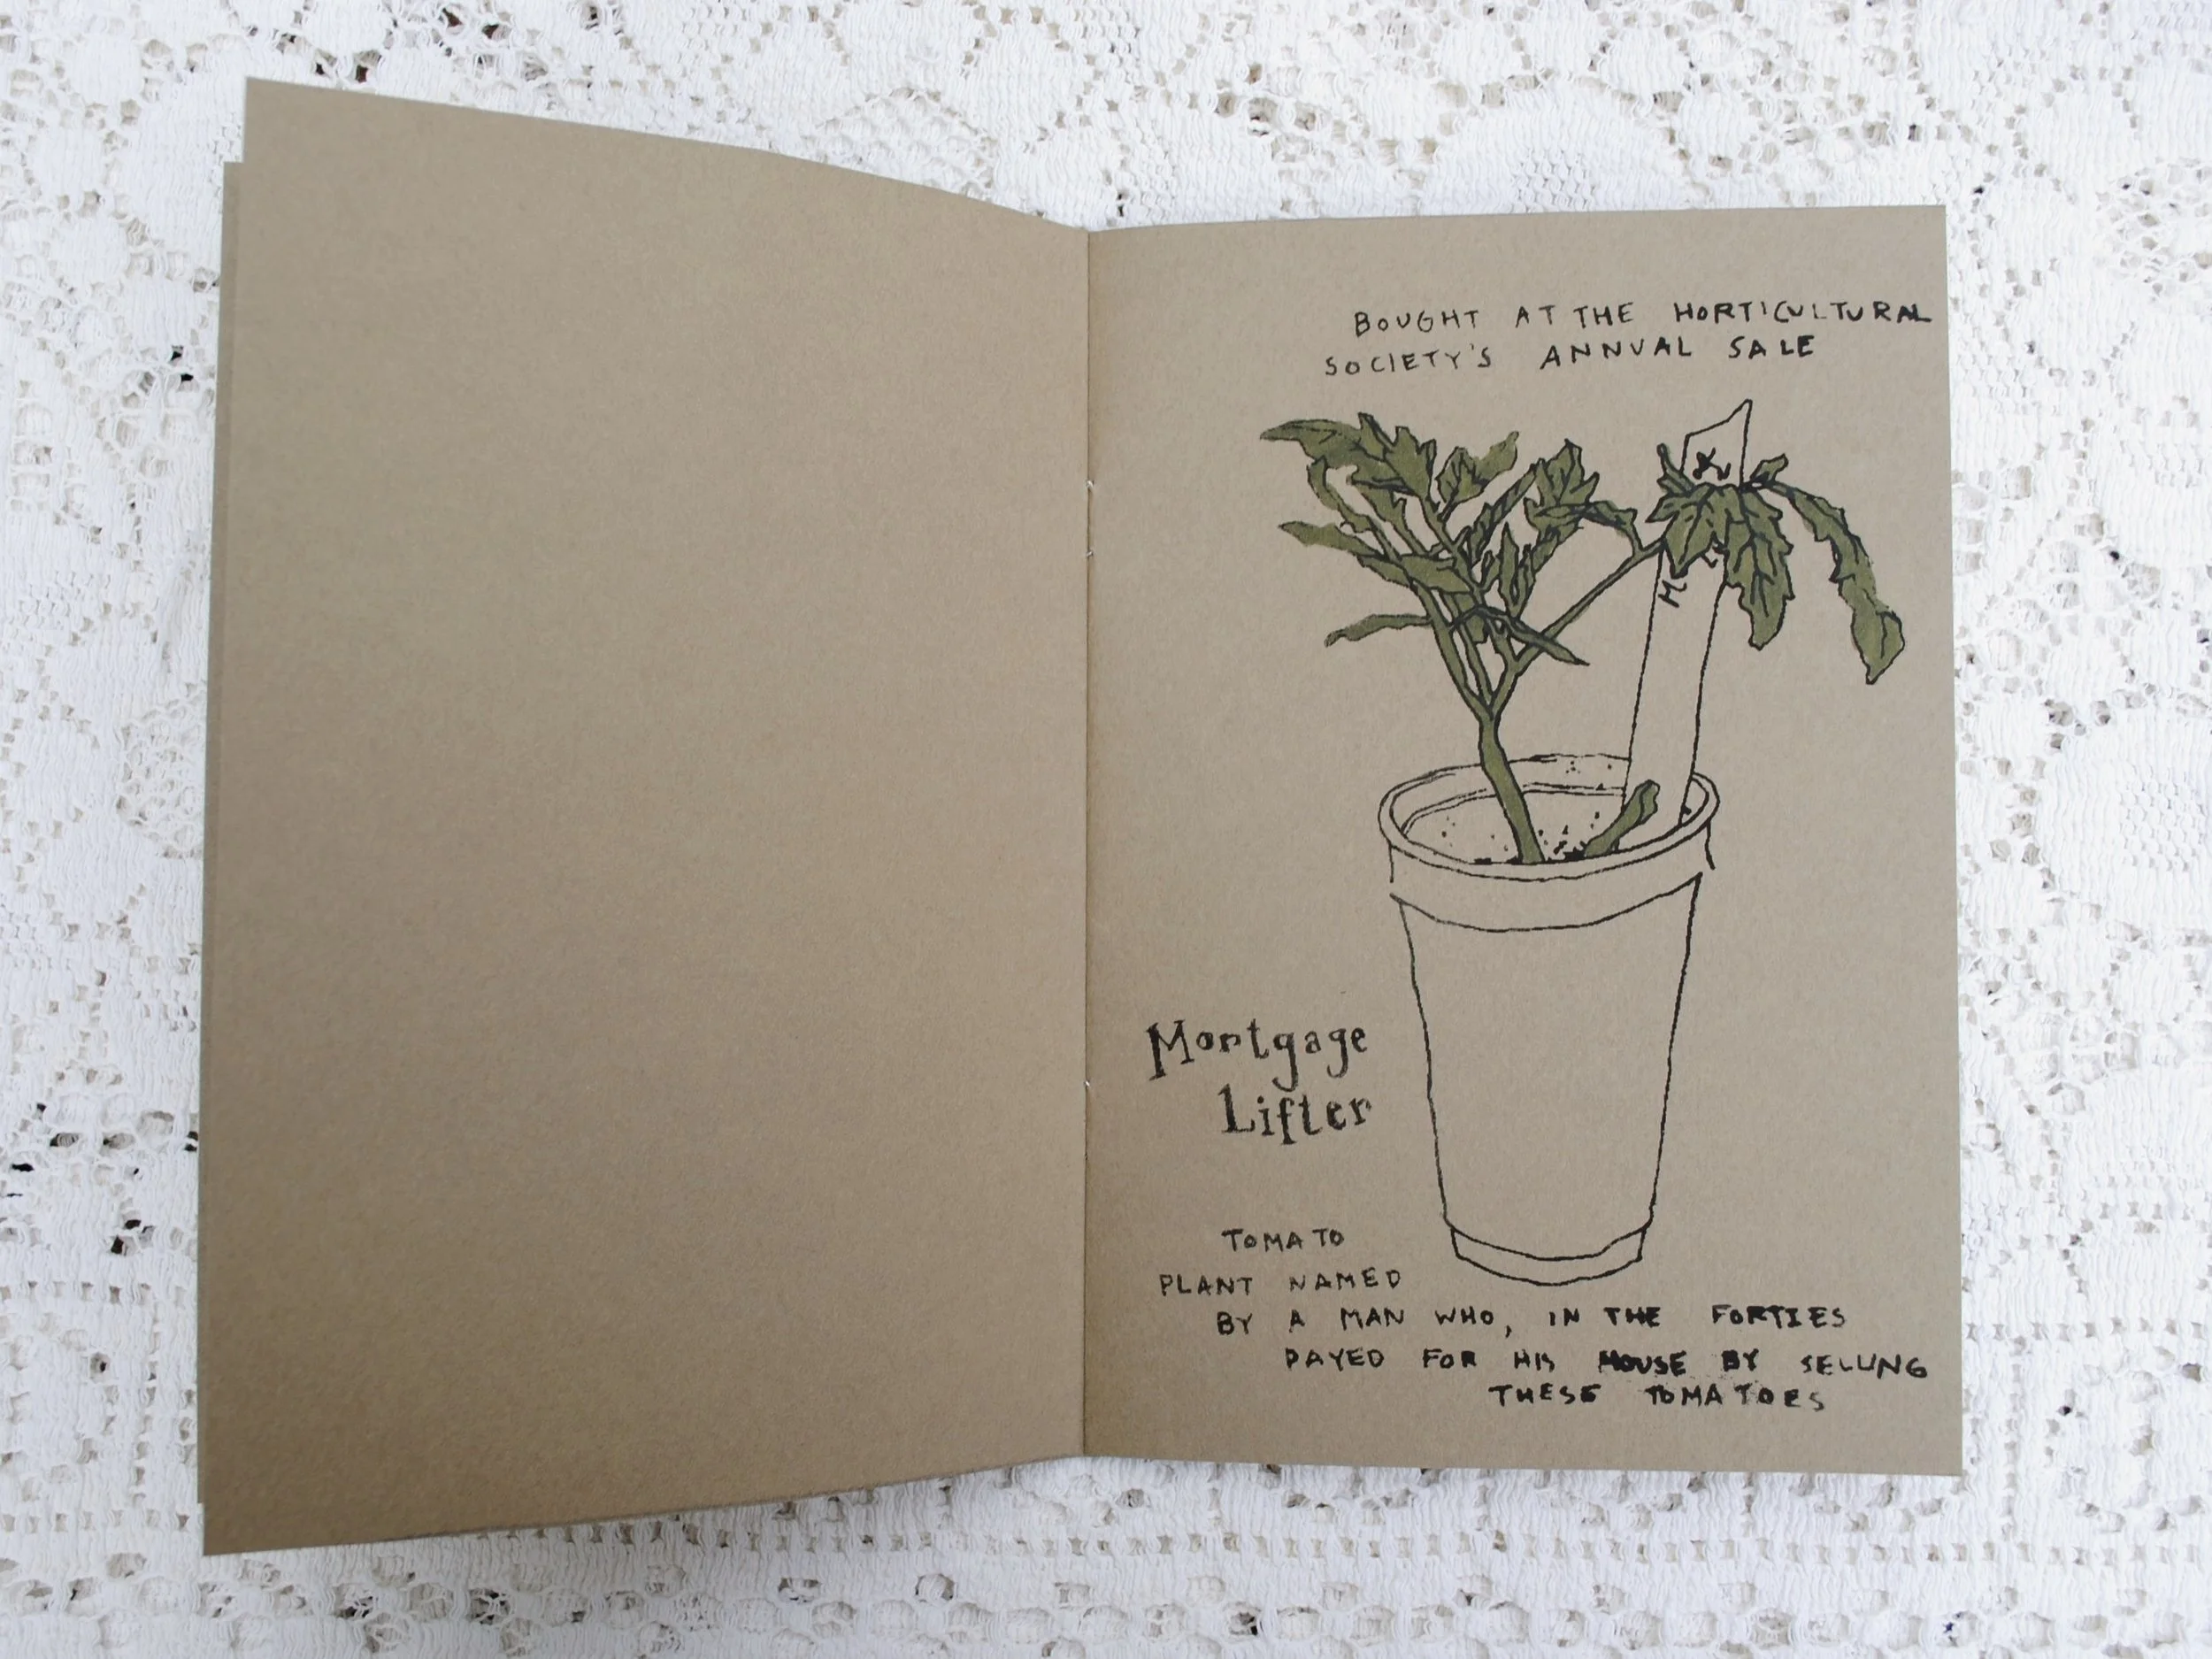 BOUGHT AT THE HORTICULTURAL
SOCIETY'S ANNUAL SALE
Mortgage
Lifter
TOMATO
PLANT NAMED
BY A MAN WHO, IN THE FORTIES
PAYED FOR HIS HOUSE BY SELLING
THESE TOMATOES